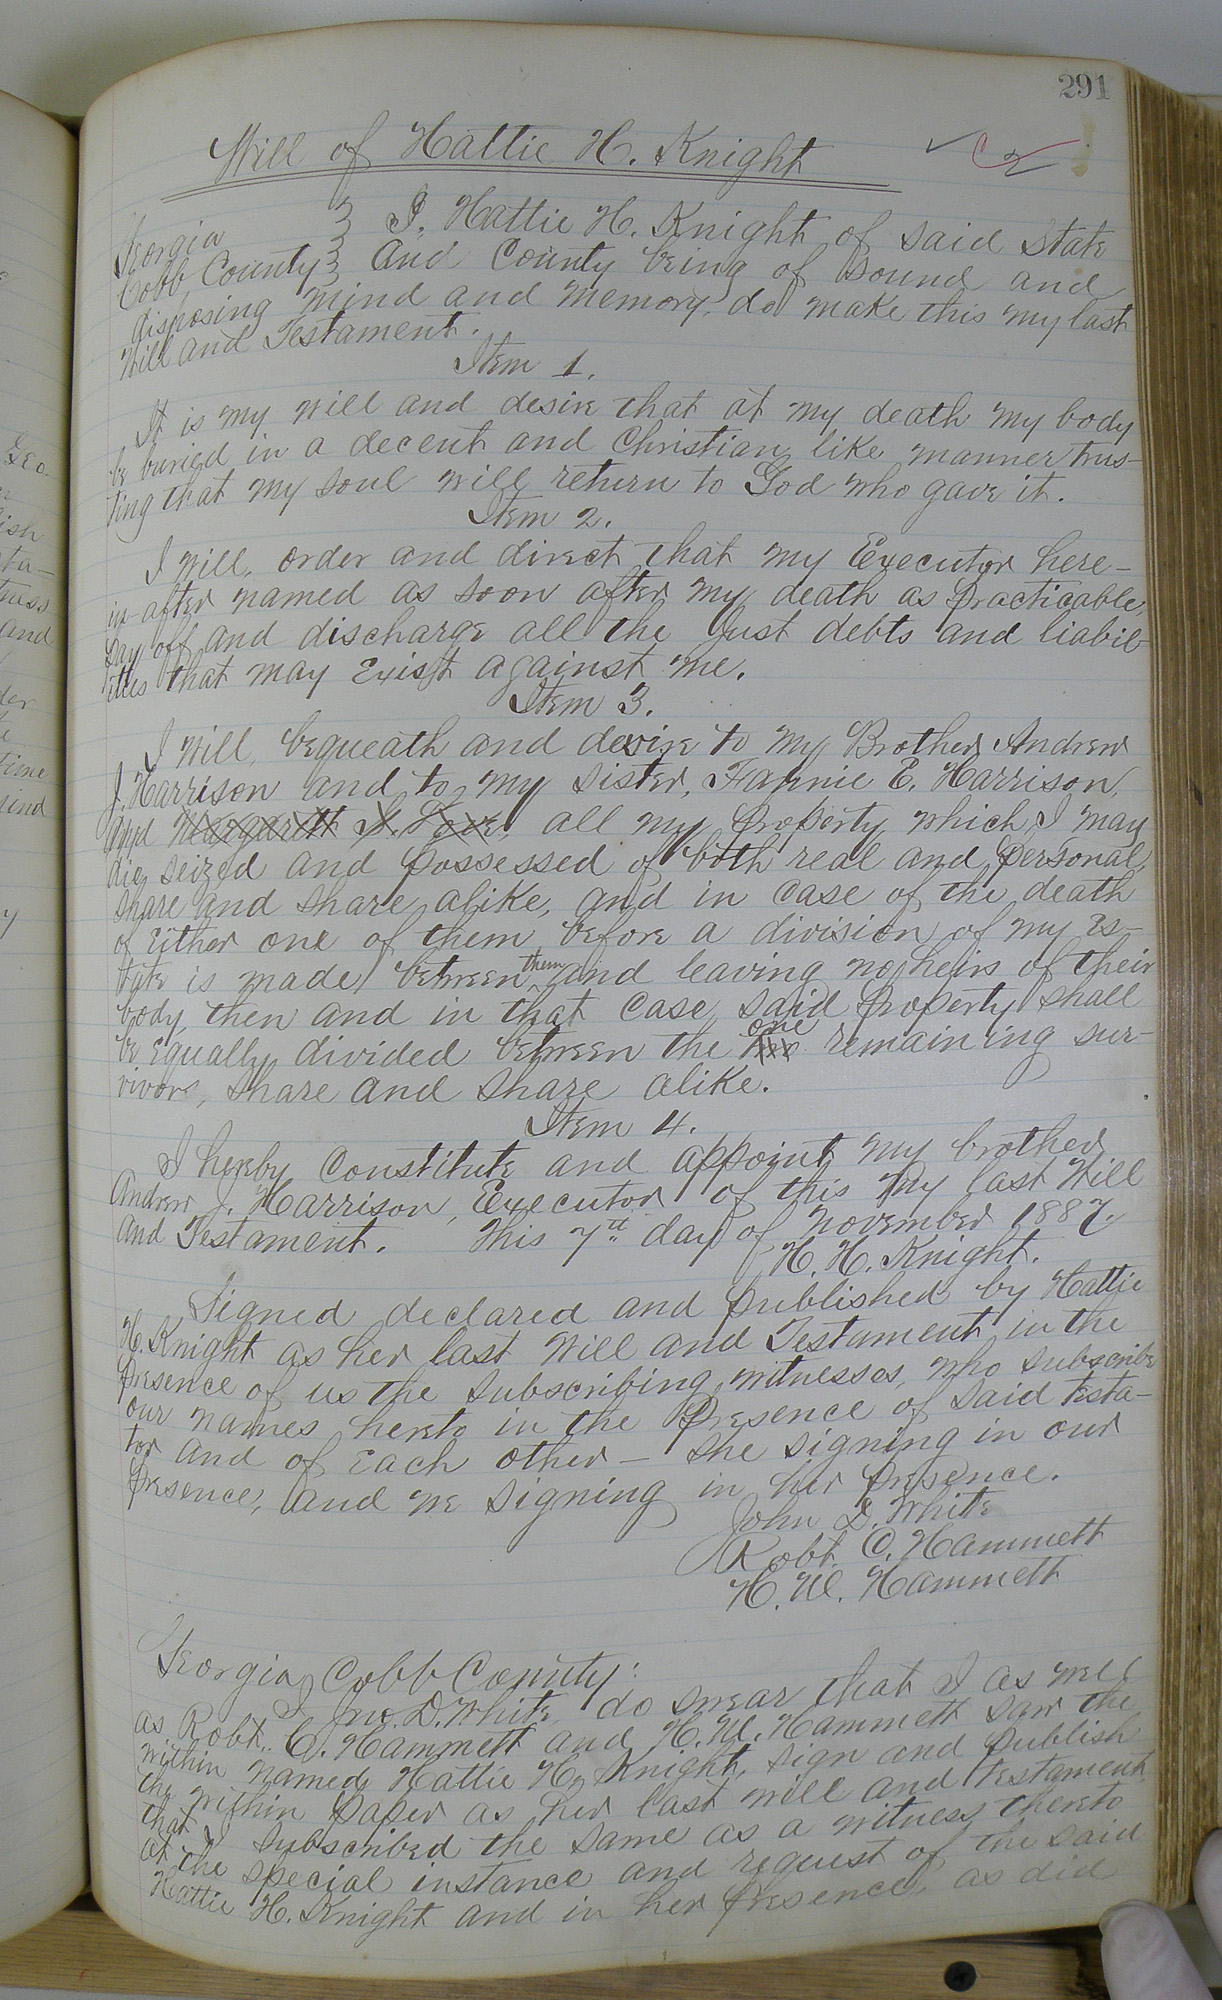 291
Will of Hattie H. Knight
Georgia } I, Hattie H. Knight of said State
Cobb County } and County being of sound and
disposing mind and memory do make this my last
Will and Testament.
Item 1.
It is my will and desire that at my death my body
be buried in a decent and Christian like manner trus-
ting that my soul will return to God who gave it.
Item 2.
I will, order and direct that my Executor here-
in-after named as soon after my death as practicable,
pay off and discharge all the just debts and liabil-
ities that may exist against me.
Item 3.
I will, bequeath and devise to my Brother Andrew
J. Harrison and to my sister, Fannie E. Harrison,
and Margarett S. Love, all my property which I may
die seized and possessed of both real and personal,
share and share alike, and in case of the death
of either one of them before a division of my es-
tate is made between them and leaving no heirs of their
body, then and in that case said property shall
be equally divided between the two one remaining sur-
vivors, share and share alike.
Item 4.
I hereby constitute and appoint my brother
Andrew J. Harrison, Executor of this my last Will
and Testament. This 7th day of November 1887.
H. H. Knight.
Signed declared and published by Hattie
H. Knight as her last Will and Testament in the
presence of us the subscribing witnesses, who subscribe
our names hereto in the presence of said testa-
tor and of each other – she signing in our
presence, and we signing in her presence.
John D. White
Robt. C. Hammett
H. W. Hammett
Georgia, Cobb County:
I Jno. D. White, do swear that I as well
as Robt. C. Hammett and H. W. Hammett saw the
within named Hattie H. Knight, sign and publish
the within paper as her last will and testament,
that I subscribed the same as a witness thereto
at the special instance and request of the said
Hattie H. Knight and in her presence, as did